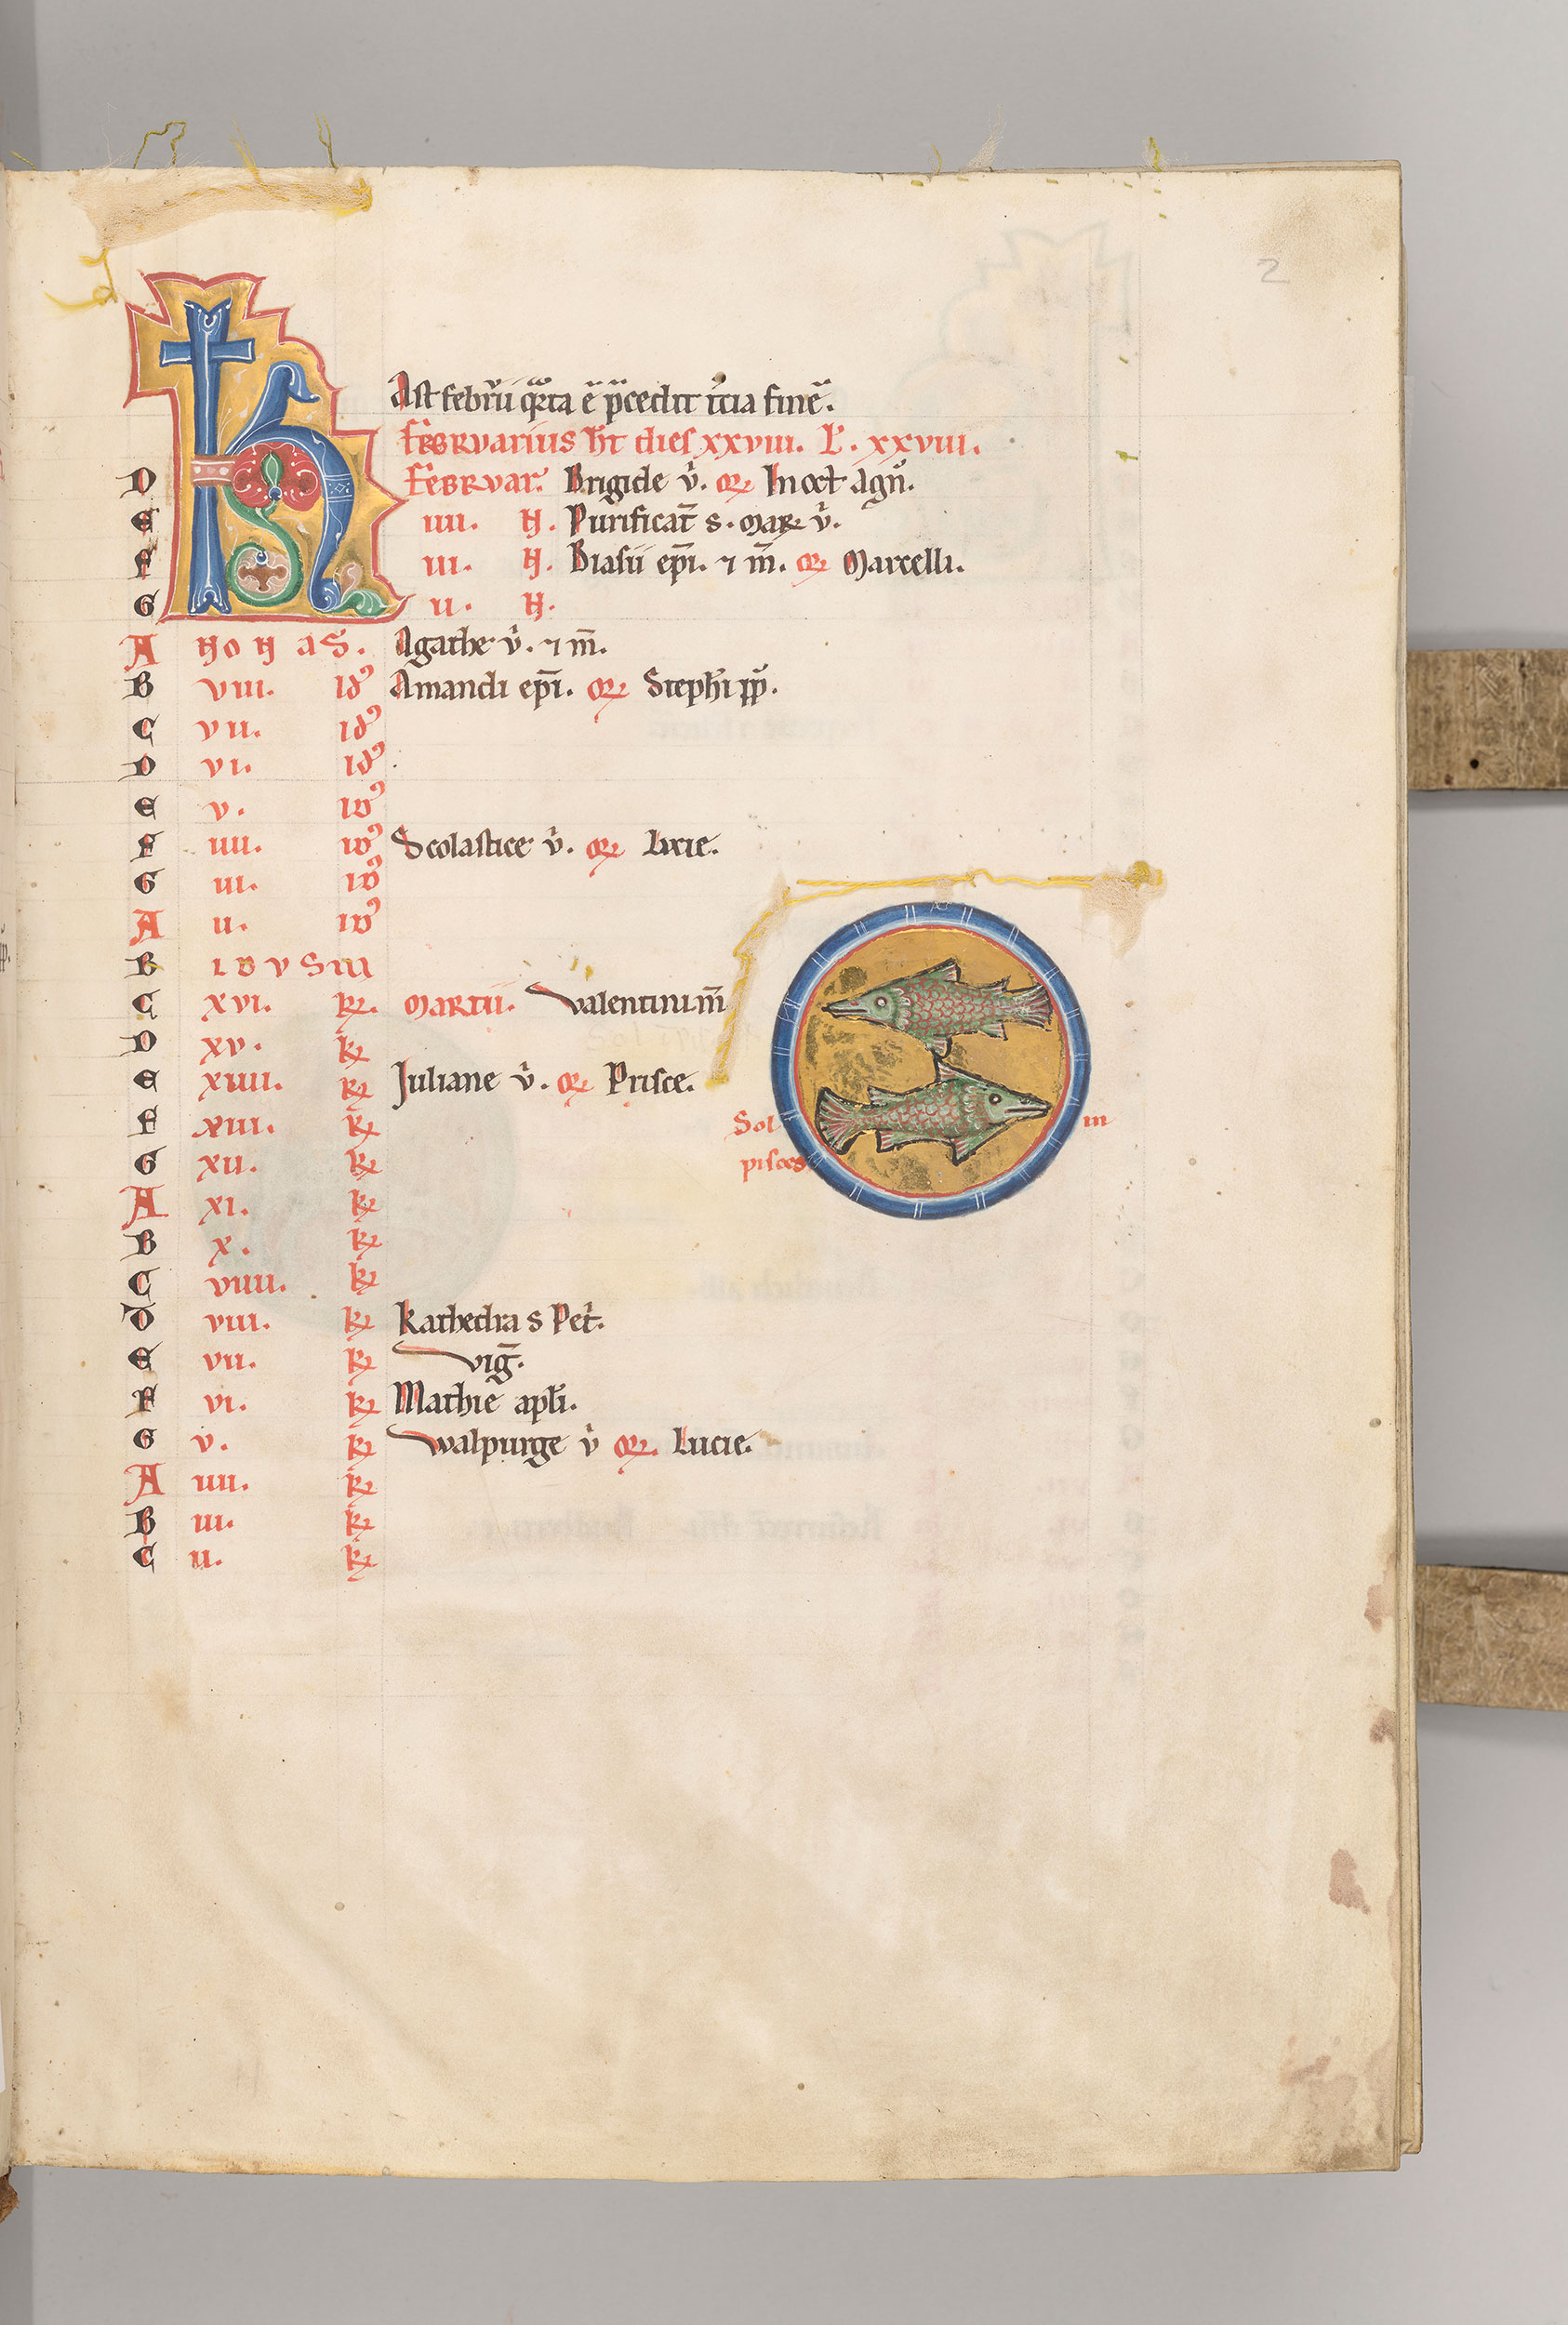 2
Ast febrũ q̃rta ẽ p̃cedit t̾cia finẽ.
Februarius ht dies xxviii. L. xxviii.
D KL Februar. Brigide v̾. oꝝ In oct agñ.
E iiii. N. Purificat̄ s. Maꝝ v̾.
F iii. N. Blasii ep̄i. ⁊ m̄. oꝝ Marcelli.
G ii. N.
A NONAS. Agathe v̾. ⁊ m̄.
B viii. Idꝰ Amandi ep̄i. oꝝ Steph̄i pp̄.
C vii. Idꝰ
D vi. Idꝰ
E v. Idꝰ
F iiii. Idꝰ Scolastice v̾. oꝝ Lucie.
G iii. Idꝰ
A ii. Idꝰ
B IDVS
C xvi. kꝉ. Martii. Valentini m̄
D xv. kꝉ
E xiiii. kꝉ Juliane v̾. oꝝ Prisce.
F xiii. kꝉ
Sol in
pisces
G xii. kꝉ
A xi. kꝉ
B x. kꝉ
C viiii. kꝉ
D viii. kꝉ Kathedra s Pet̾.
E vii. kꝉ vig̃.
F vi. kꝉ Mathie apl̄i.
G v. kꝉ Walpurge v̾ oꝝ. Lucie.
A iiii. kꝉ
B iii. kꝉ
C ii. kꝉ